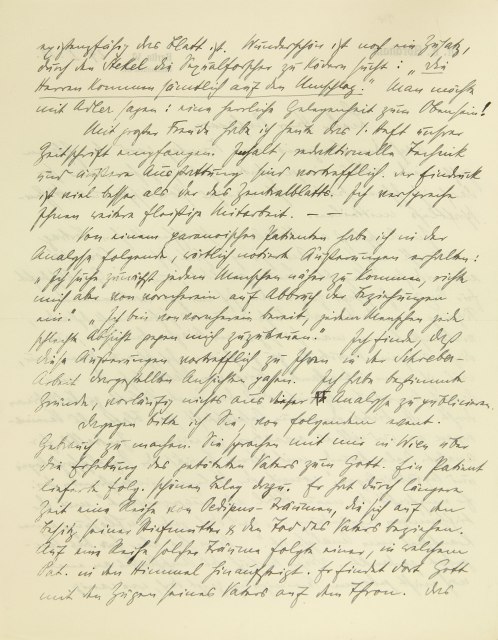 existenzfähig das Blatt ist. Wunderschön ist noch ein Zusatz,
durch den Stekel die Sexualforscher zu ködern sucht: „Die
Herren kommen sämtlich auf den Umschlag." Man möchte
mit Adler sagen: eine herrliche Gelegenheit zum Obensein!
Mit großer Freude habe ich heute das 1. Heft unsrer
Zeitschrift empfangen. Inhalt, redaktionelle Technik
und äußere Ausstattung sind vortrefflich. Der Eindruck
ist viel besser als der des Zentralblatts. Ich verspreche
Ihnen weitere fleißige Mitarbeit. — —
Von einem paranoischen Patienten habe ich in der
Analyse folgende, wörtlich notierte Äußerungen erhalten:
„Ich suche zunächst jedem Menschen näher zu kommen, richte
mich aber von vornherein auf Abbruch der Beziehungen
ein." „Ich bin von vornherein bereit, jedem Menschen jede
schlechte Absicht gegen mich zuzutrauen." Ich finde, daß
diese Äußerungen vortrefflich zu Ihren in der Schreber-
Arbeit dargestellten Ansichten passen. Ich habe bestimmte
Gründe, vorläufig nichts aus dieser Analyse zu publicieren.
Dagegen bitte ich Sie, von folgendem event.
Gebrauch zu machen. Sie sprachen mit mir in Wien über
die Erhebung des getöteten Vaters zum Gott. Ein Patient
lieferte folg. schönen Beleg dazu. Er hat durch längere
Zeit eine Reihe von Oedipus-Träumen, die sich auf den
Besitz seiner Stiefmutter & den Tod des Vaters beziehen.
Auf eine Reihe solcher Träume folgte einer, in welchem
Pat. in den Himmel hinaufsteigt. Er findet dort Gott
mit den Zügen seines Vaters auf dem Thron. Das